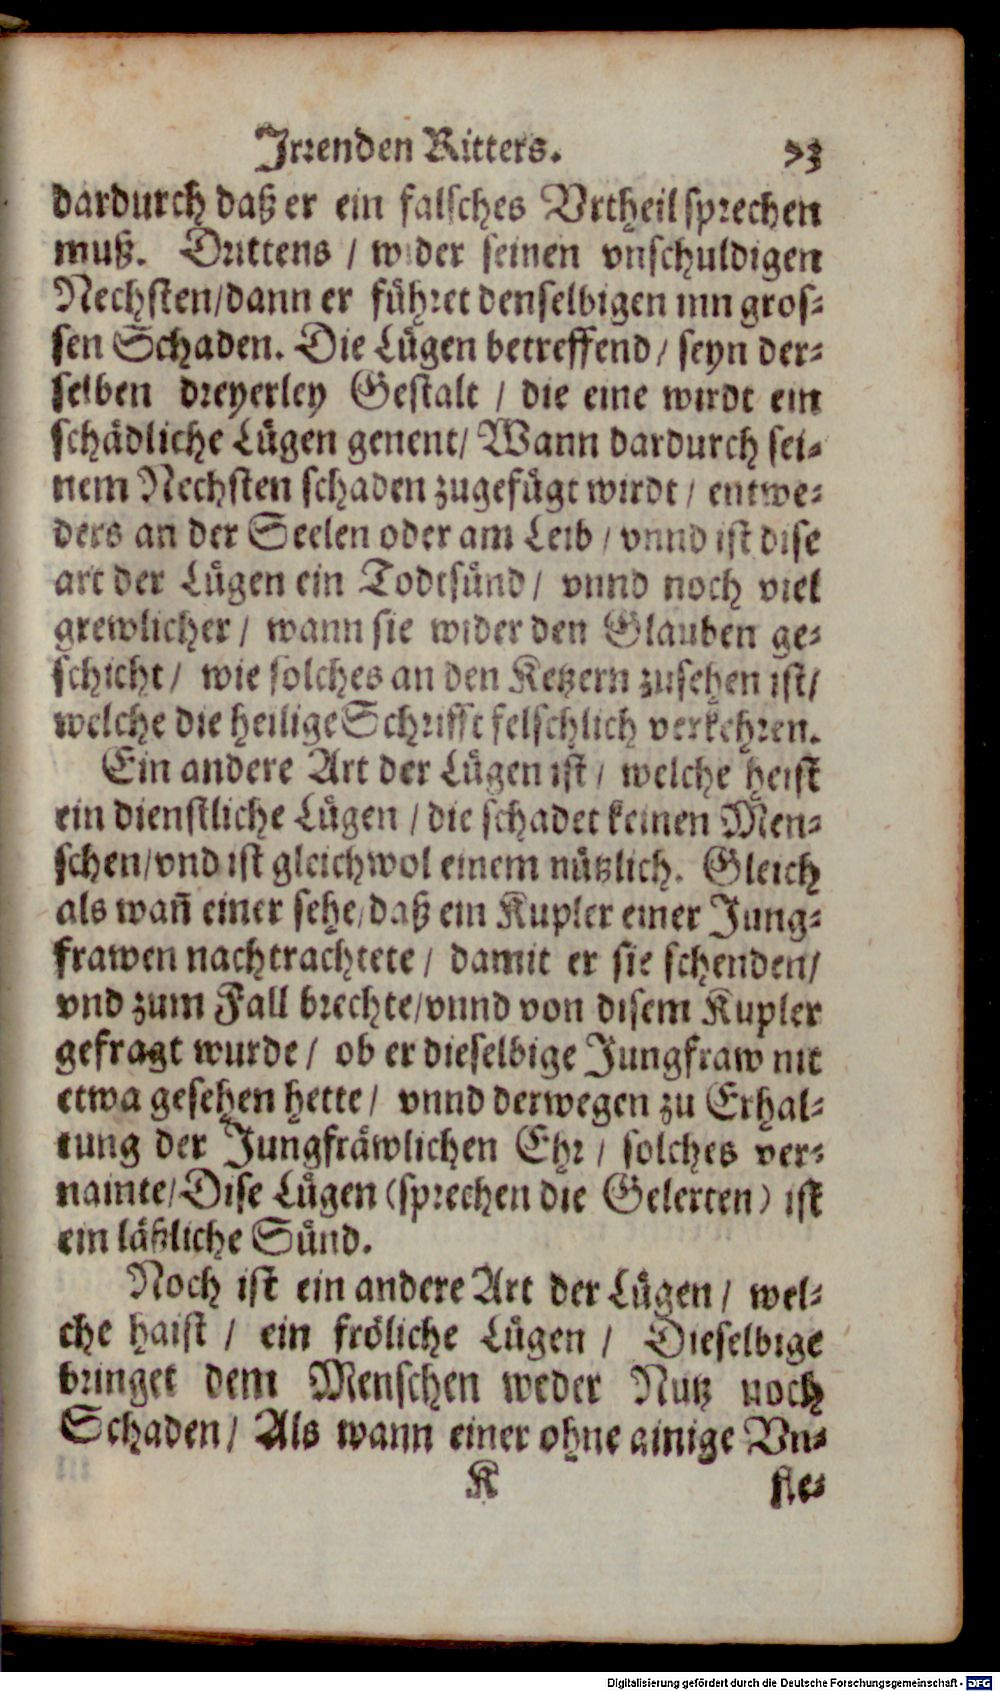 Irrenden Ritters. 73
dardurch daß er ein falsches Vrtheil sprechen
muß. Drittens / wider seinen vnschuldigen
Nechsten/dann er führet denselbigen inn gros-
sen Schaden. Die Lügen betreffend / seyn der-
selben dreyerley Gestalt / die eine wirdt ein
schädliche Lügen genent/ Wann dardurch sei-
nem Nechsten schaden zugefügt wirdt / entwe-
ders an der Seelen oder am Leib / vnnd ist dise
art der Lügen ein Todtsünd / vnnd noch viel
grewlicher / wann sie wider den Glauben ge-
schicht / wie solches an den Ketzern zusehen ist/
welche die heilige Schrifft felschlich verkehren.
Ein andere Art der Lügen ist / welche heist
ein dienstliche Lügen / die schadet keinen Men-
schen/vnd ist gleichwol einem nützlich. Gleich
als wañ einer sehe/daß ein Kupler einer Jung-
frawen nachtrachtete / damit er sie schenden/
vnd zum Fall brechte/vnnd von disem Kupler
gefragt wurde / ob er dieselbige Jungfraw nit
etwa gesehen hette / vnnd derwegen zu Erhal-
tung der Jungfräwlichen Ehr / solches ver-
nainte/Dise Lügen (sprechen die Gelerten) ist
ein läßliche Sünd.
Noch ist ein andere Art der Lügen / wel-
che haist / ein fröliche Lügen / Dieselbige
bringet dem Menschen weder Nutz noch
Schaden / Als wann einer ohne ainige Vn-
K fle-
Digitalisierung gefördert durch die Deutsche Forschungsgemeinschaft - DFG